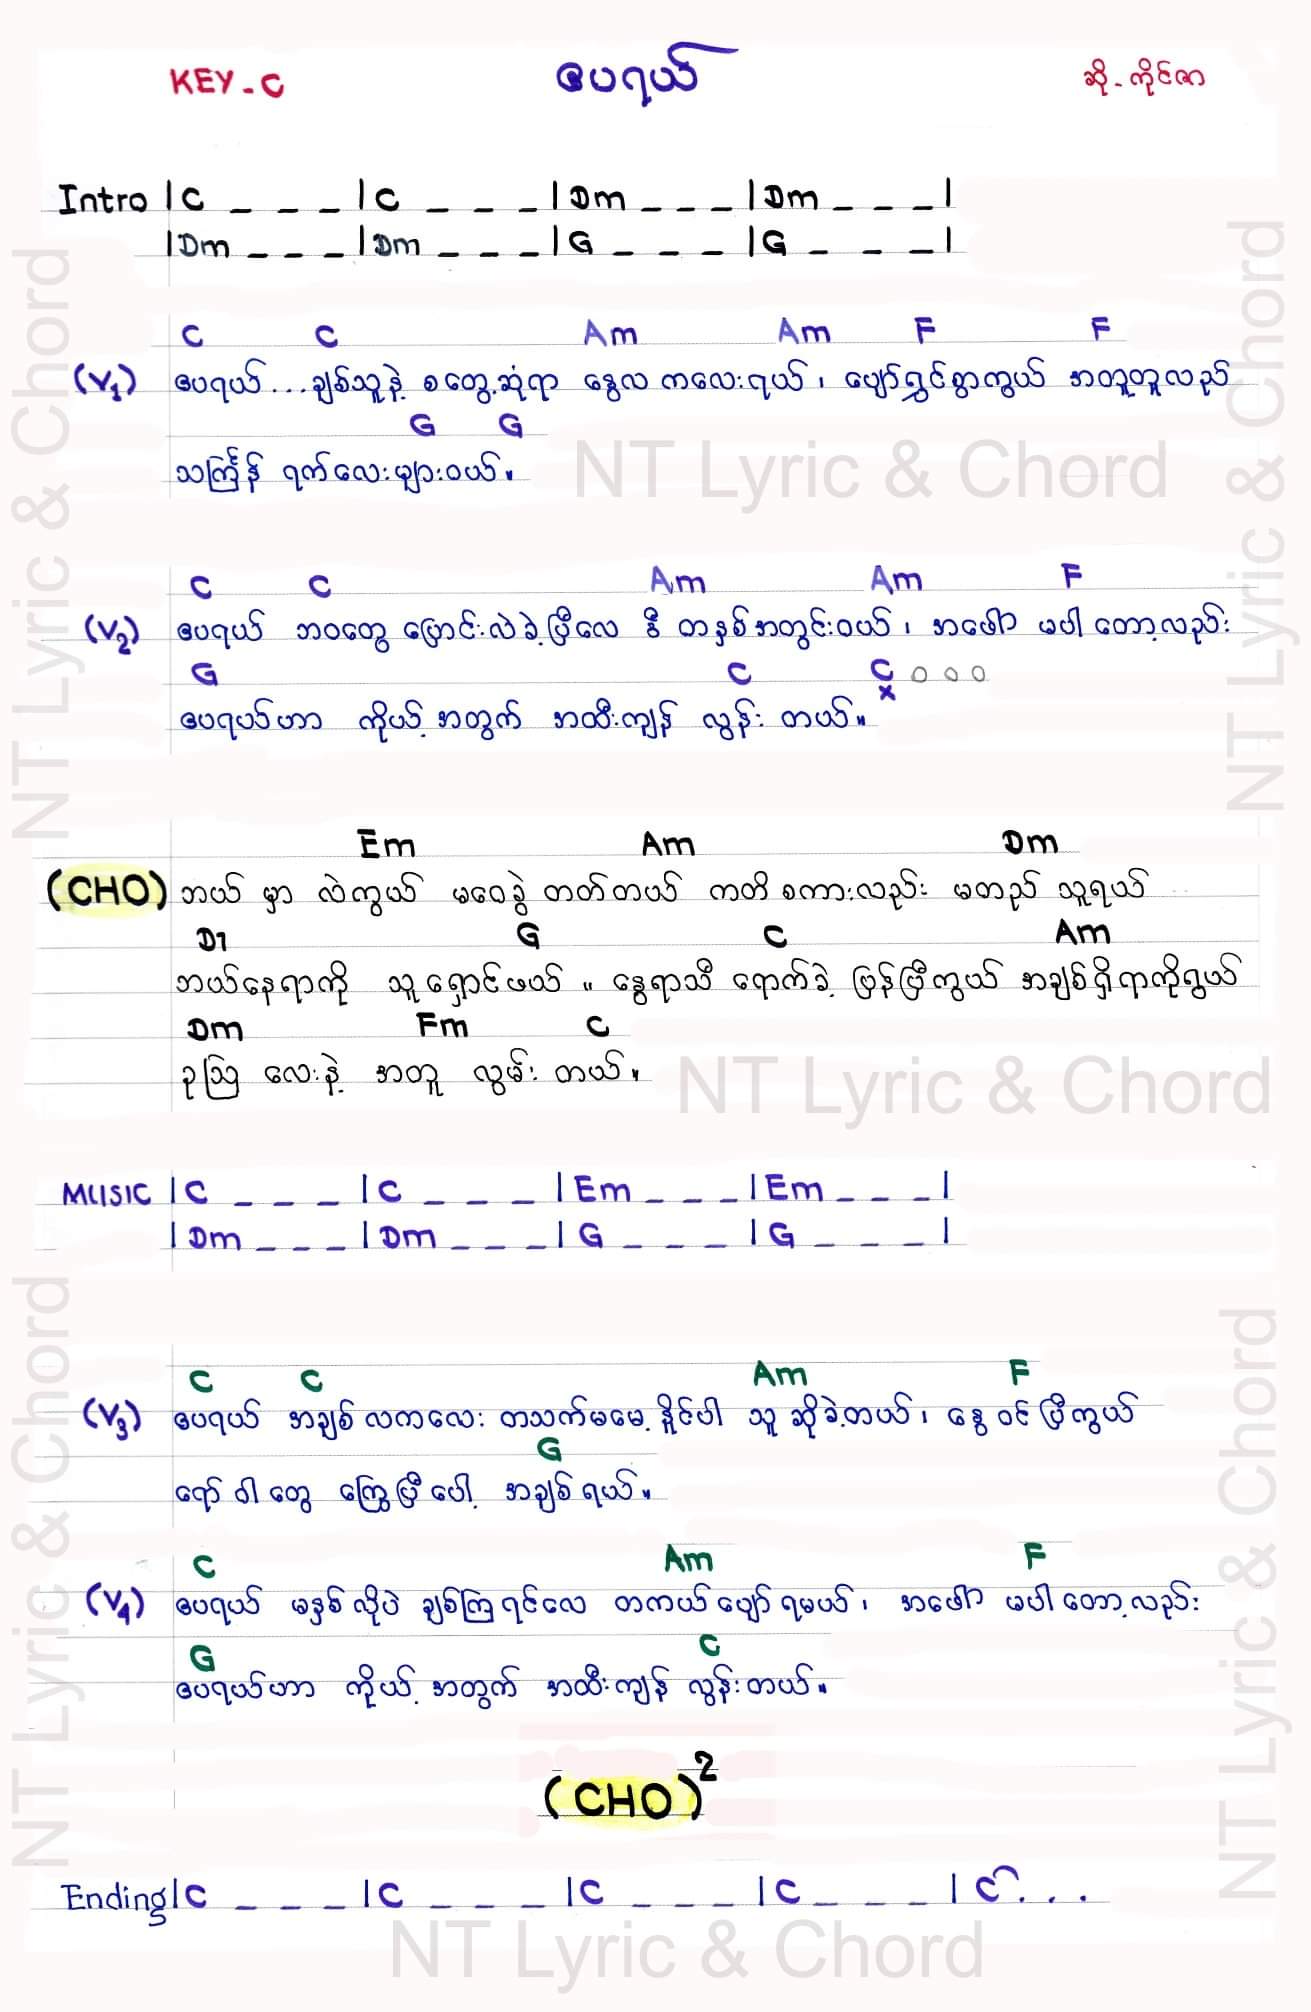 KEY-C
ဧပရယ်
ဆို-ကိုင်ဇာ
Intro |C _ _ _ |C _ _ _ |Dm _ _ _ |Dm _ _ _ |
|Dm _ _ _ |Dm _ _ _ |G _ _ _ |G _ _ _ |
C C Am Am F F
(V1) ဧပရယ်...ချစ်သူနဲ့ စတွေ့ဆုံရာ နွေလ ကလေးရယ်၊ ပျော်ရွှင်စွာကွယ် အတူတူလည်
G G
သင်္ကြန် ရက်လေးများဝယ်။
NT Lyric & Chord
C C Am Am F
(V2) ဧပရယ် ဘဝတွေ ပြောင်းလဲခဲ့ပြီလေ ဒီ တနှစ်အတွင်းဝယ်၊ အဖော် မပါတော့လည်း
G C C x o o o
ဧပရယ်ဟာ ကိုယ့်အတွက် အထီးကျန် လွန်း တယ်။
Em Am Dm
(CHO) ဘယ် မှာ လဲကွယ် မဝေခွဲ တတ်တယ် ကတိ စကားလည်း မတည် သူရယ်
D7 G C Am
ဘယ်နေရာကို သူရှောင်ဖယ် ။ နွေရာသီ ရောက်ခဲ့ ပြန်ပြီကွယ် အချစ်ရှိရာကိုရွယ်
Dm Fm C
ဥသြ လေးနဲ့ အတူ လွမ်း တယ်။
NT Lyric & Chord
MUSIC |C _ _ _ |C _ _ _ |Em _ _ _ |Em _ _ _ |
|Dm _ _ _ |Dm _ _ _ |G _ _ _ |G _ _ _ |
C C Am F
(V3) ဧပရယ် အချစ် လကလေး တသက်မမေ့နိုင်ပါ သူ ဆိုခဲ့တယ်၊ နွေ ဝင် ပြီကွယ်
G
ရော်ဝါတွေ ကြွေပြီပေါ့ အချစ်ရယ်။
C Am F
(V4) ဧပရယ် မနှစ်လိုပဲ ချစ်ကြရင်လေ တကယ်ပျော်ရမယ်၊ အဖော် မပါတော့လည်း
G C
ဧပရယ်ဟာ ကိုယ့်အတွက် အထီးကျန် လွန်းတယ်။
(CHO)2
Ending |C _ _ _ |C _ _ _ |C _ _ _ |C _ _ _ |C ...
NT Lyric & Chord
NT Lyric & Chord
NT Lyric & Chord
NT Lyric & Chord
NT Lyric & Chord